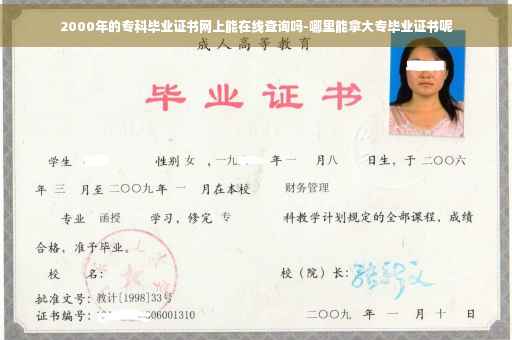 2000年的专科毕业证书网上能在线查询吗-哪里能拿大专毕业证书呢
成人高等教育
毕业证书
学生 性别 女 ，一九 年 一 月八 日生，于 二〇〇六
年 三 月至 二〇〇九 年 一 月在本校 财务管理
专业 函授 学习，修完 专 科教学计划规定的全部课程，成绩
合格，准予毕业。
校 名： 校（院）长：
批准文号：教计[1998]33号
证书编号： 06001310 二〇〇九 年 一 月 十 日